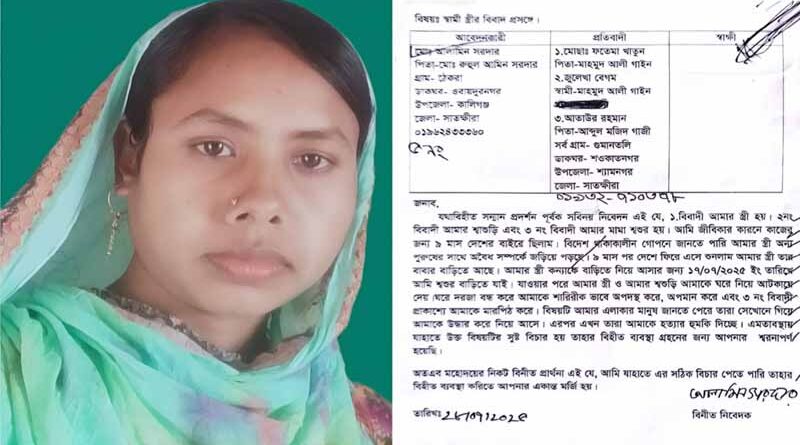 বিষয়ঃ স্বামী স্ত্রীর বিবাদ প্রসঙ্গে।
আবেদনকারী
প্রতিবাদী
স্বাক্ষী
মোঃ আলামিন সরদার
পিতা-মোঃ রুহুল আমিন সরদার
গ্রাম- ঠেকরা
ডাকঘর- ওবায়দুরনগর
উপজেলা- কালিগঞ্জ
জেলা- সাতক্ষীরা
০১৯৬২৪৩৩৩৬০
১.মোছাঃ ফতেমা খাতুন
পিতা-মাহমুদ আলী গাইন
২.জুলেখা বেগম
স্বামী-মাহমুদ আলী গাইন
৩.আতাউর রহমান
পিতা-আব্দুল মজিদ গাজী
সর্ব গ্রাম- গুমানতলি
ডাকঘর- শওকাতনগর
উপজেলা- শ্যামনগর
জেলা- সাতক্ষীরা
জনাব,
যথাবিহীত সন্মান প্রদর্শন পূর্বক সবিনয় নিবেদন এই যে, ১.বিবাদী আমার স্ত্রী হয়। ২নং
বিবাদী আমার শ্বাশুড়ি এবং ৩ নং বিবাদী আমার মামা শ্বশুর হয়। আমি জীবিকার কারনে কাজের
জন্য ৯ মাস দেশের বাইরে ছিলাম। বিদেশ থাকাকালীন গোপনে জানতে পারি আমার স্ত্রী অন্য
পুরুষের সাথে অবৈধ সম্পর্কে জড়িয়ে পড়ছে। ৯ মাস পর দেশে ফিরে এসে শুনলাম আমার স্ত্রী তার
বাবার বাড়িতে আছে। আমার স্ত্রী কন্যাকে বাড়িতে নিয়ে আসার জন্য ১৭/০৭/২০২৫ ইং তারিখে
আমি শ্বশুর বাড়িতে যাই। যাওয়ার পরে আমার স্ত্রী ও আমার শ্বাশুড়ি আমাকে ঘরে নিয়ে আটকায়ে
দেয় ঘরে দরজা বন্ধ করে আমাকে শারিরীক ভাবে অপদস্থ করে, অপমান করে এবং ৩ নং বিবাদী
প্রাকাশ্যে আমাকে মারপিঠ করে। বিষয়টি আমার এলাকার মানুষ জানতে পেরে তারা সেখোনে গিয়ে
আমাকে উদ্ধার করে নিয়ে আসে। এরপর এখন তারা আমাকে হত্যার হুমকি দিচ্ছে। এমতাবস্থায়
যাহাতে উক্ত বিষয়টির সুষ্ট বিচার হয় তাহার বিহীত ব্যবস্থা গ্রহনের জন্য আপনার শ্বরনাপর্ণ
হয়েছি।
অতএব মহোদয়ের নিকট বিনীত প্রার্থনা এই যে, আমি যাহাতে এর সঠিক বিচার পেতে পারি তাহার
বিহীত ব্যবস্থা করিতে আপনার একান্ত মর্জি হয়।
তারিখঃ
বিনীত নিবেদক